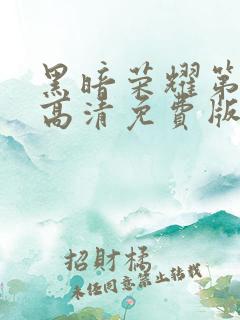 黑暗荣耀第
高清免費版
招財橘
未任同意禁止转载